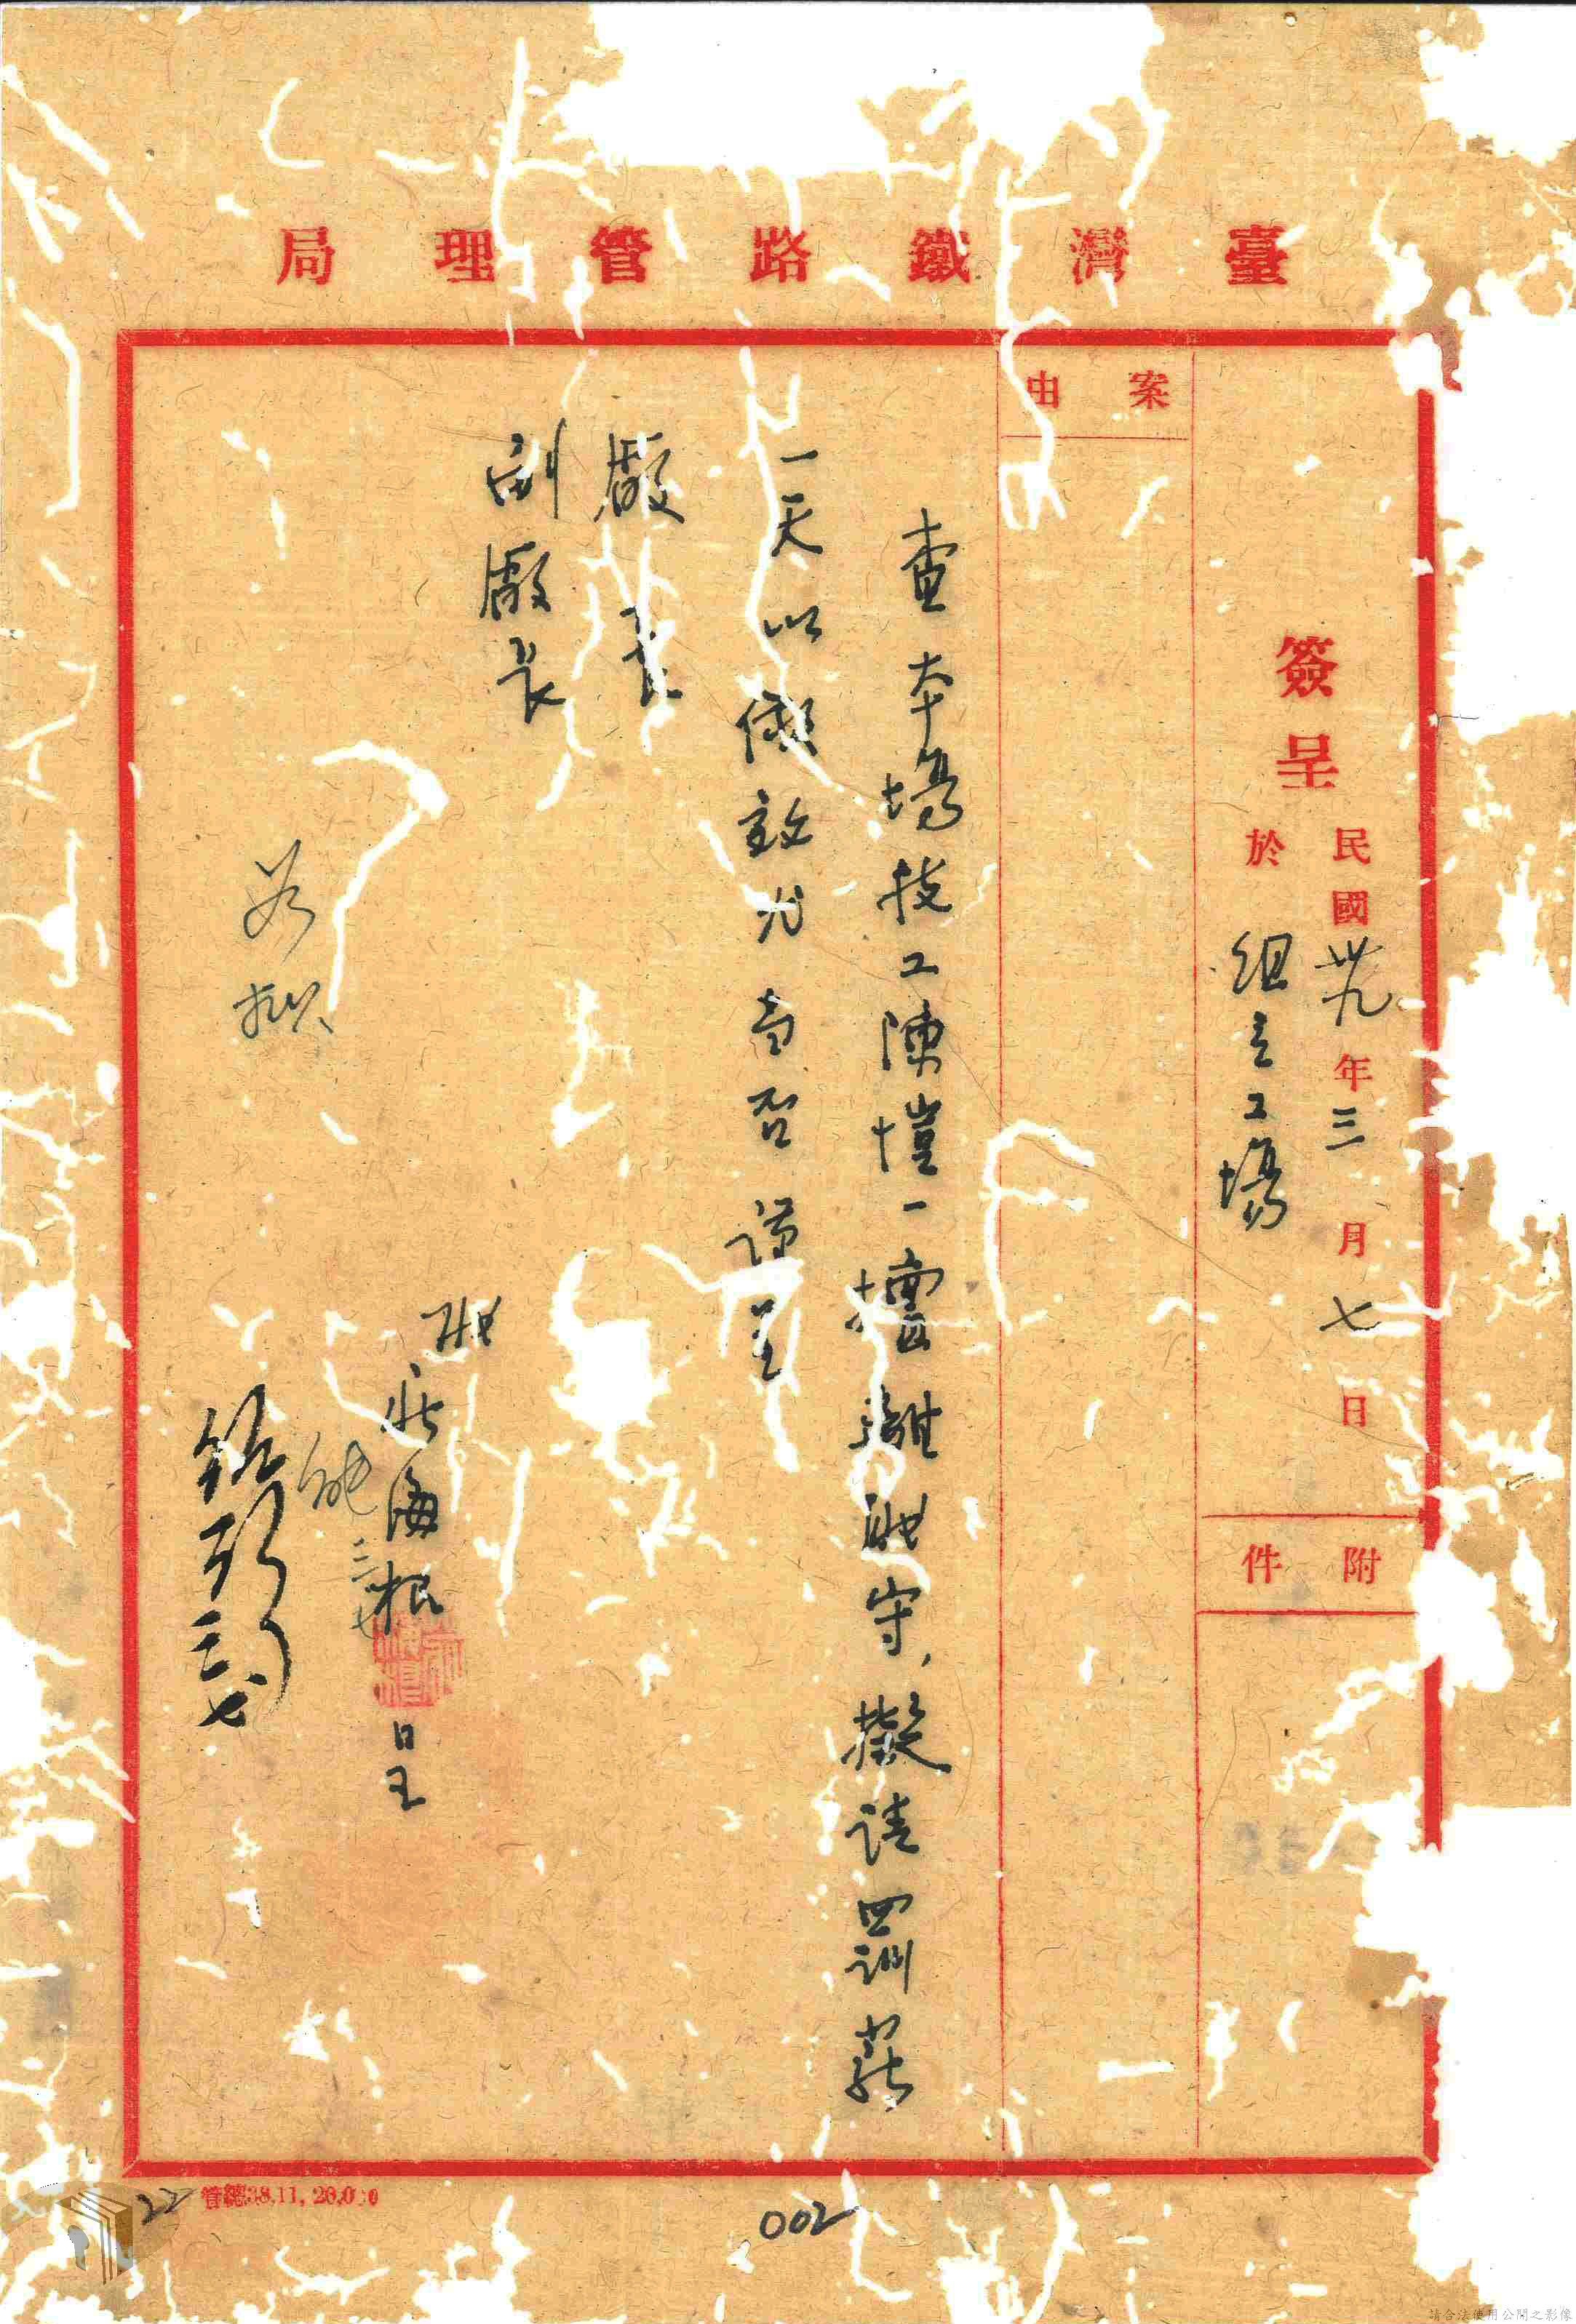 臺灣鐵路管理局
簽呈
民國卅九年三月七日
於組立工場
附件
案由
查本場技工陳愷一擅離職守、擬請罰薪
一天以儆效尤當否謹呈
廠長
副廠長
職
莊海根呈
三七
三七
若擬
管總38.11.20,000
22
002
請合法使用公開之影像